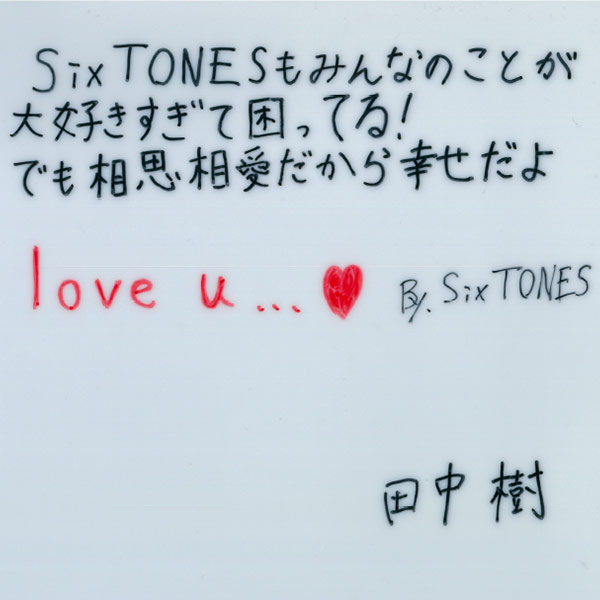 SixTONESもみんなのことが
大好きすぎて困ってる!
でも相思相愛だから幸せだよ
love u...♥ By. SixTONES
田中樹